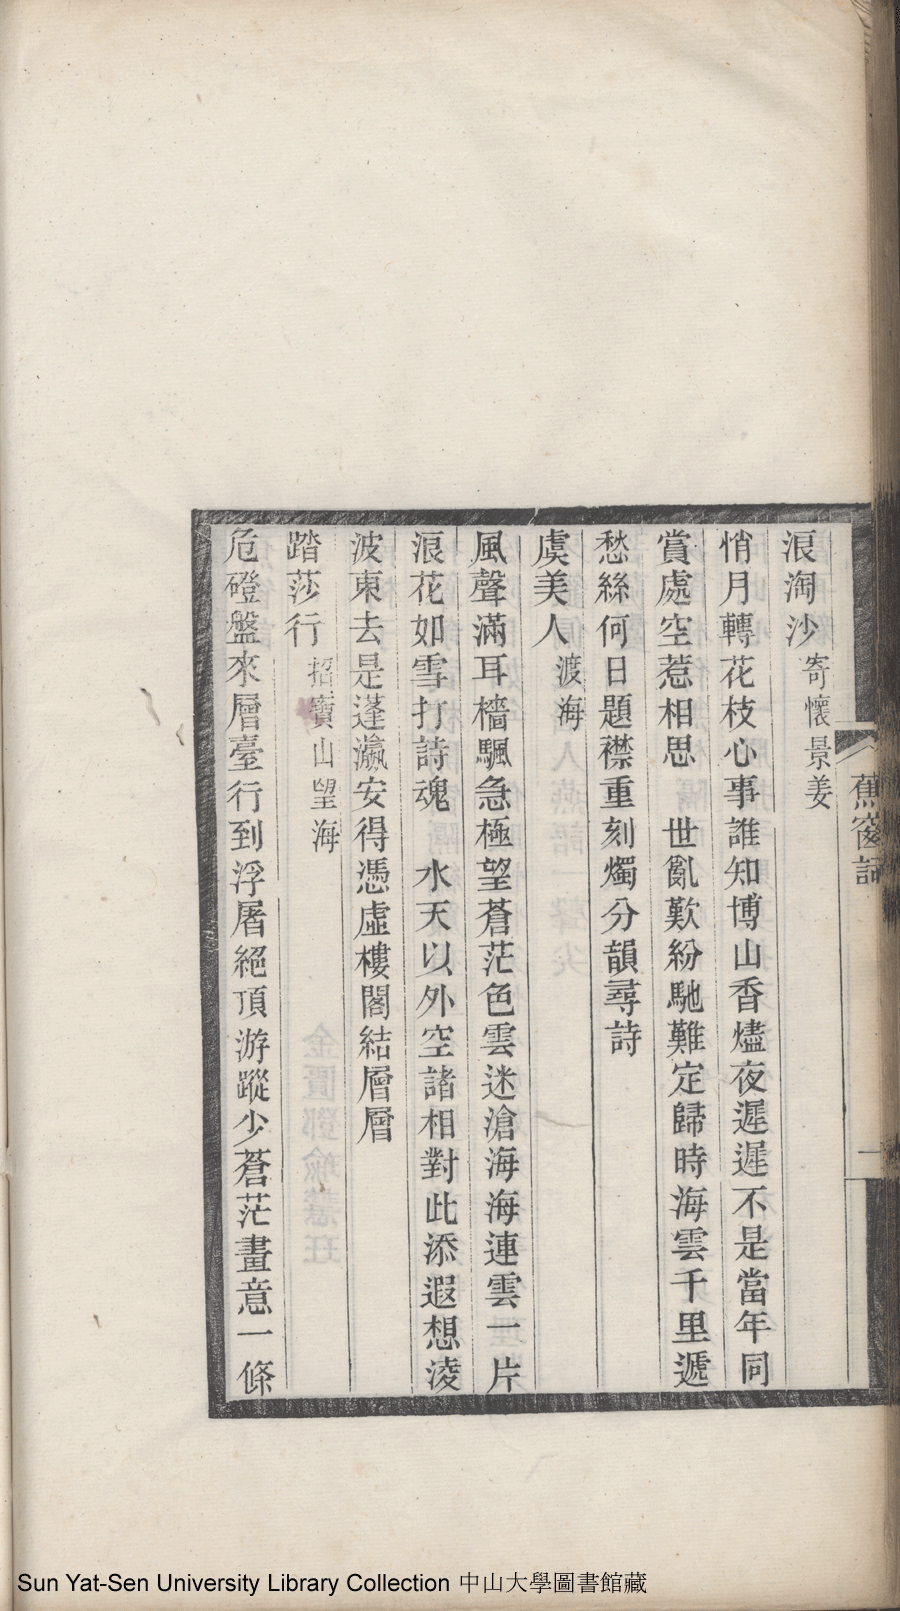 浪淘沙 寄懷景姜
悄月轉花枝心事誰知博山香燼夜遲遲不是當年同
賞處空惹相思 世亂歎紛馳難定歸時海雲千里遞
愁絲何日題襟重刻燭分韻尋詩
虞美人 渡海
風聲滿耳檣颿急極望蒼茫色雲迷滄海海連雲一片
浪花如雪打詩魂 水天以外空諸相對此添遐想淩
波東去是蓬瀛安得憑虛樓閣結層層
踏莎行 招寶山望海
危磴盤來層臺行到浮屠絕頂游蹤少蒼茫畫意一條
蕉窗
一
Sun Yat-Sen University Library Collection 中山大學圖書館藏